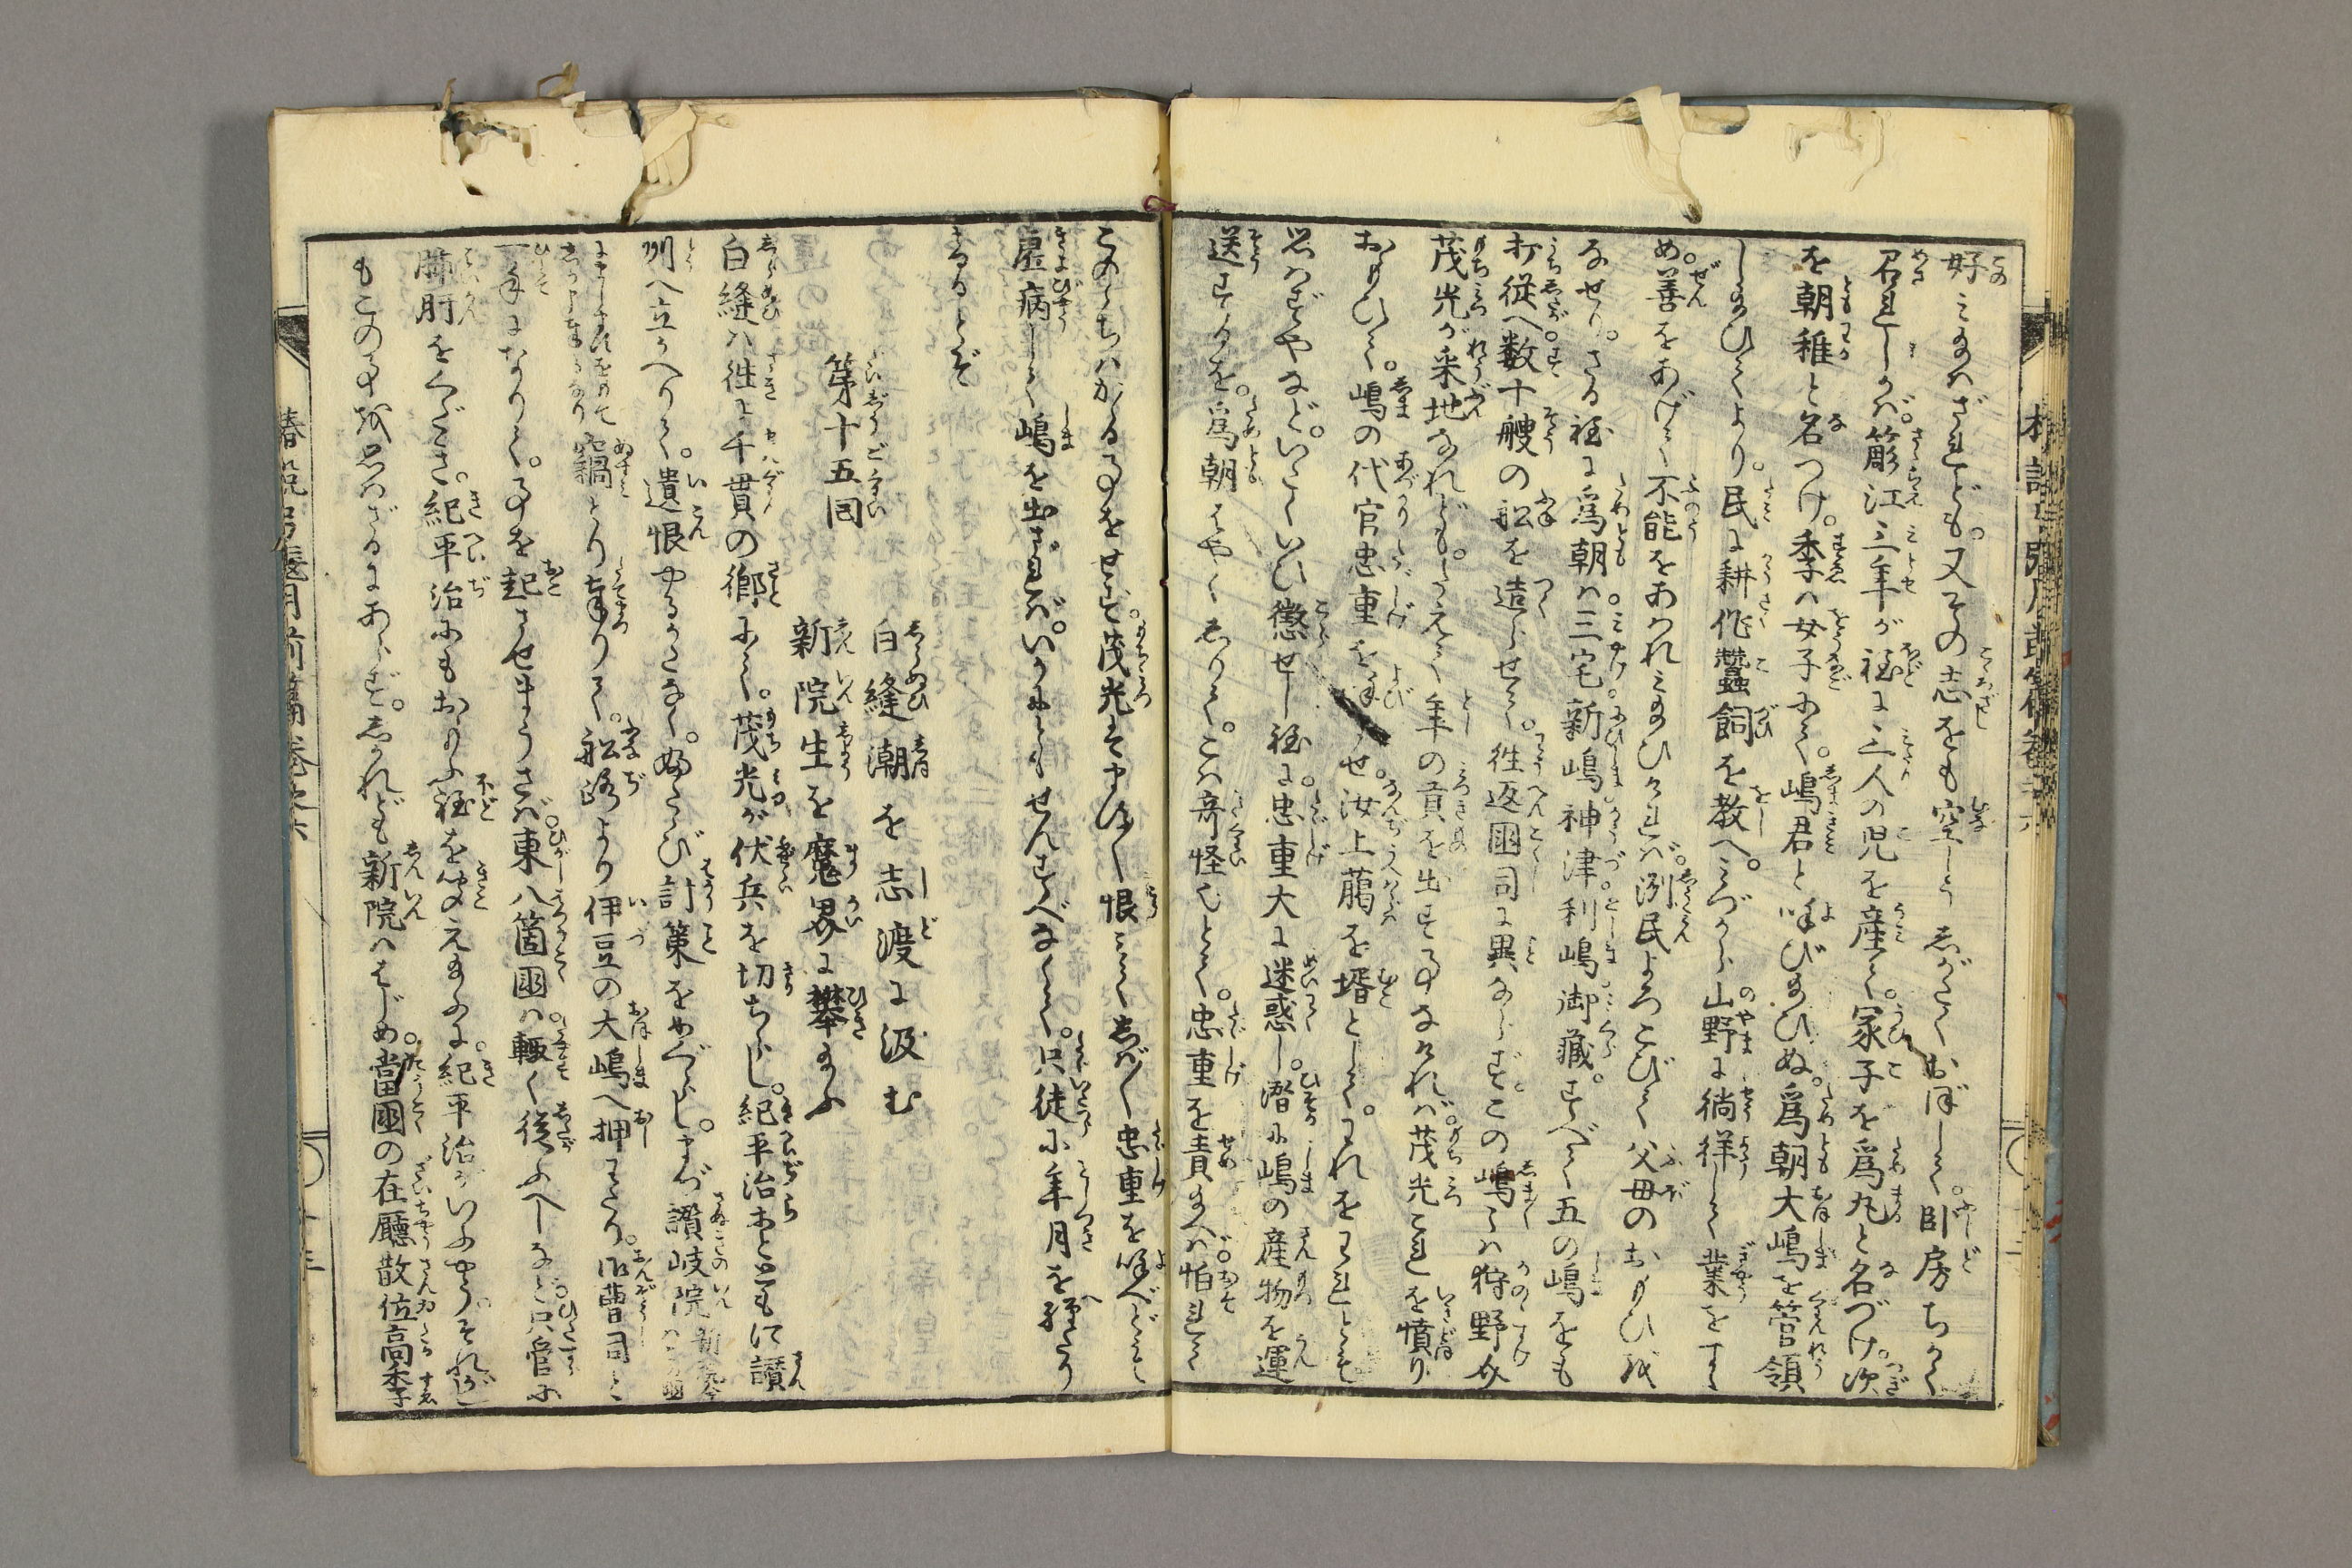 好み給はざれども。又その志をも空しう しがたくおぼして。臥房ちかく
召れしかば。簓江三年が程に三人の児を産て。冢子を爲丸と名づけ。次
を朝稚と名つけ。季は女子にて。嶋君と呼び給ひぬ。爲朝大嶋を管領
し給ひてより。民に耕作蠶飼を教へ。みづから山野に徜徉して業をすゝ
め。善をあげて不能をあはれみ給ひければ。洌民よろこびて父母のおもひを
なせり。さる程に爲朝は三宅新嶋神津利嶋御藏。すべて五の嶋をも
打従へ数十艘の舩を造らせて。徃返国司に異ならず。この嶋々は狩野介
茂光が采地なれども。たえて年の貢を出す事なければ。茂光これを憤り
おもひて。嶋の代官忠重を
せ。汝上﨟を壻として。われをわれとも
思はずやなど。いたくいひ懲せし程に。忠重大に迷惑し。潜に嶋の産物を運
送するを。爲朝はやくしりて。こは奇怪也とて。忠重を責給へば。怕れて
このゝちはかゝる事をせず。茂光はます〳〵恨みて。しば〳〵忠重を呼べども
虚病して嶋を出ざれば。いかにともせんすべなくて。只徒に年月を経たり
けるとぞ
第十五回
白縫潮を志渡に汲む
新院生を魔界に攀給ふ
白縫は徃に千貫の郷にて。茂光が伏兵を切ちらし。紀平治等とともに讃
州へ立かへりて。遺恨やるかたなく。ふたゝび計策をめぐらし。まづ讃岐院
竊とり奉りて。舩路より伊豆の大嶋へ押わたり。御曹司と
一手になりて。事を起させまうさば。東八箇国は輙く従ふべしなど。只管に
肺肝をくだき。紀平治にもおもふ程を聞え給ふに。紀平治がいふやう。それがし
もこの事を思はざるにあらず。しかれども新院ははじめ當国の在廳散位高季
椿説弓張月前篇巻之六